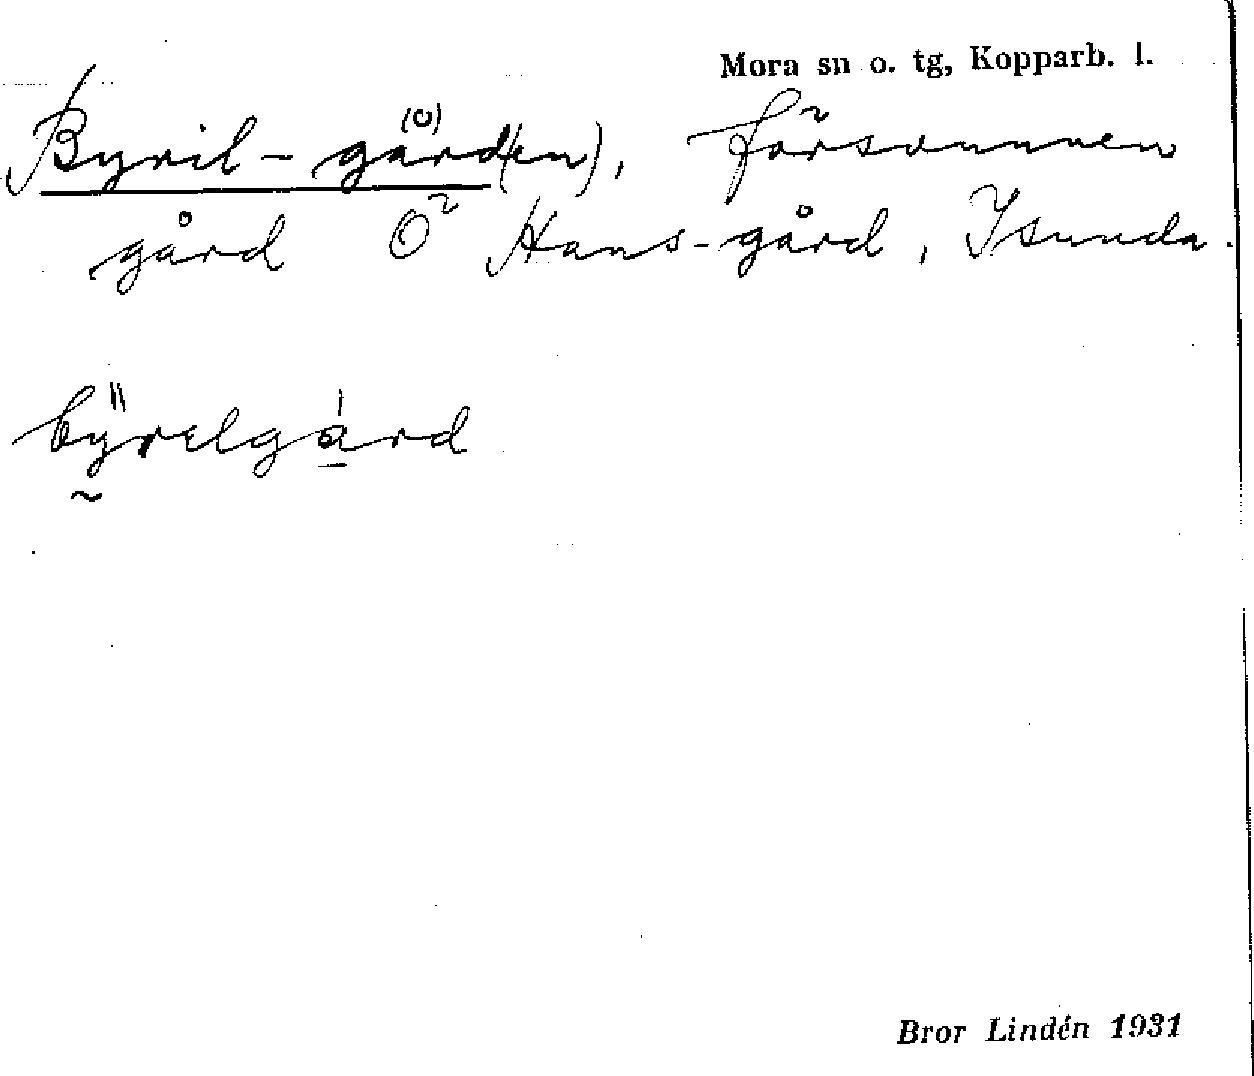 Mora sn o. tg, Kopparb. l.
Byril-gård(en), försvunnen
gård O Hans-gård, Isunda.
byrelgård
Bror Lindén 1931